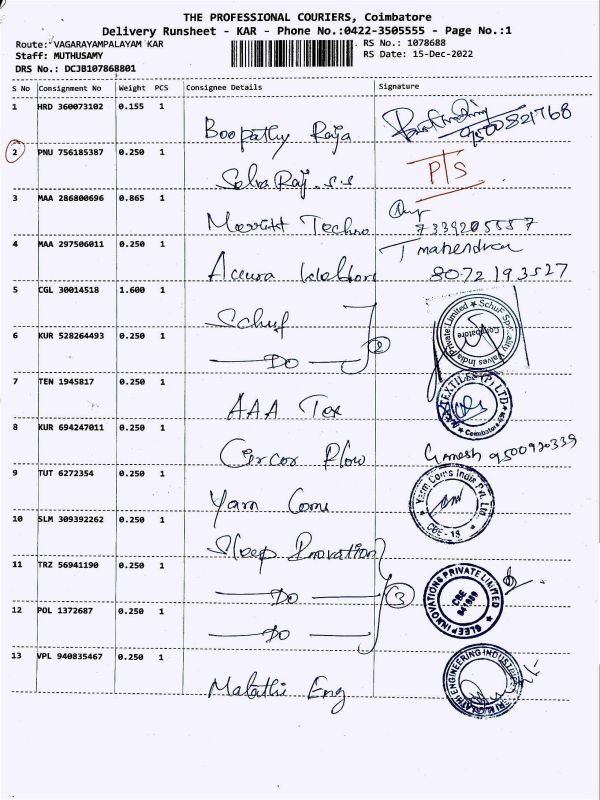 THE PROFESSIONAL COURIERS, Coimbatore
Delivery Runsheet - KAR - Phone No.:0422-3505555 - Page No.:1
Route: VAGARAYAMPALAYAM KAR RS No.: 1078688
Staff: MUTHUSAMY RS Date: 15-Dec-2022
DRS No.: DCJB107868801
S No Consignment No Weight PCS Consignee Details Signature
1 HRD 360073102 0.155 1
Boopathy Raja 9500821768
2 PNU 756185387 0.250 1
Selva Raj. S.S PTS
3 MAA 286800696 0.865 1
Merritt Techno 7339205557
4 MAA 297506011 0.250 1 T mahendran
Accura 8072193527
5 CGL 30014518 1.600 1
Schuf
6 KUR 528264493 0.250 1 2
DO
Schuf Speciality Valves India Private Limited Coimbatore
7 TEN 1945817 0.250 1
AAA Tex
TEXTILES (P) LTD Coimbatore
8 KUR 694247011 0.250 1
Circor Flow Ganesh 9500920339
9 TUT 6272354 0.250 1
Yarn Coms
Yarn Coms India Pvt. Ltd CBE - 18
10 SLM 309392262 0.250 1
Sleep Innovation
11 TRZ 56941190 0.250 1
DO 3
12 POL 1372687 0.250 1
DO
SLEEP INNOVATIONS PRIVATE LIMITED CBE
13 VPL 940835467 0.250 1
Malathi Eng
SRI MALATHI ENGINEERING INDUSTRIES